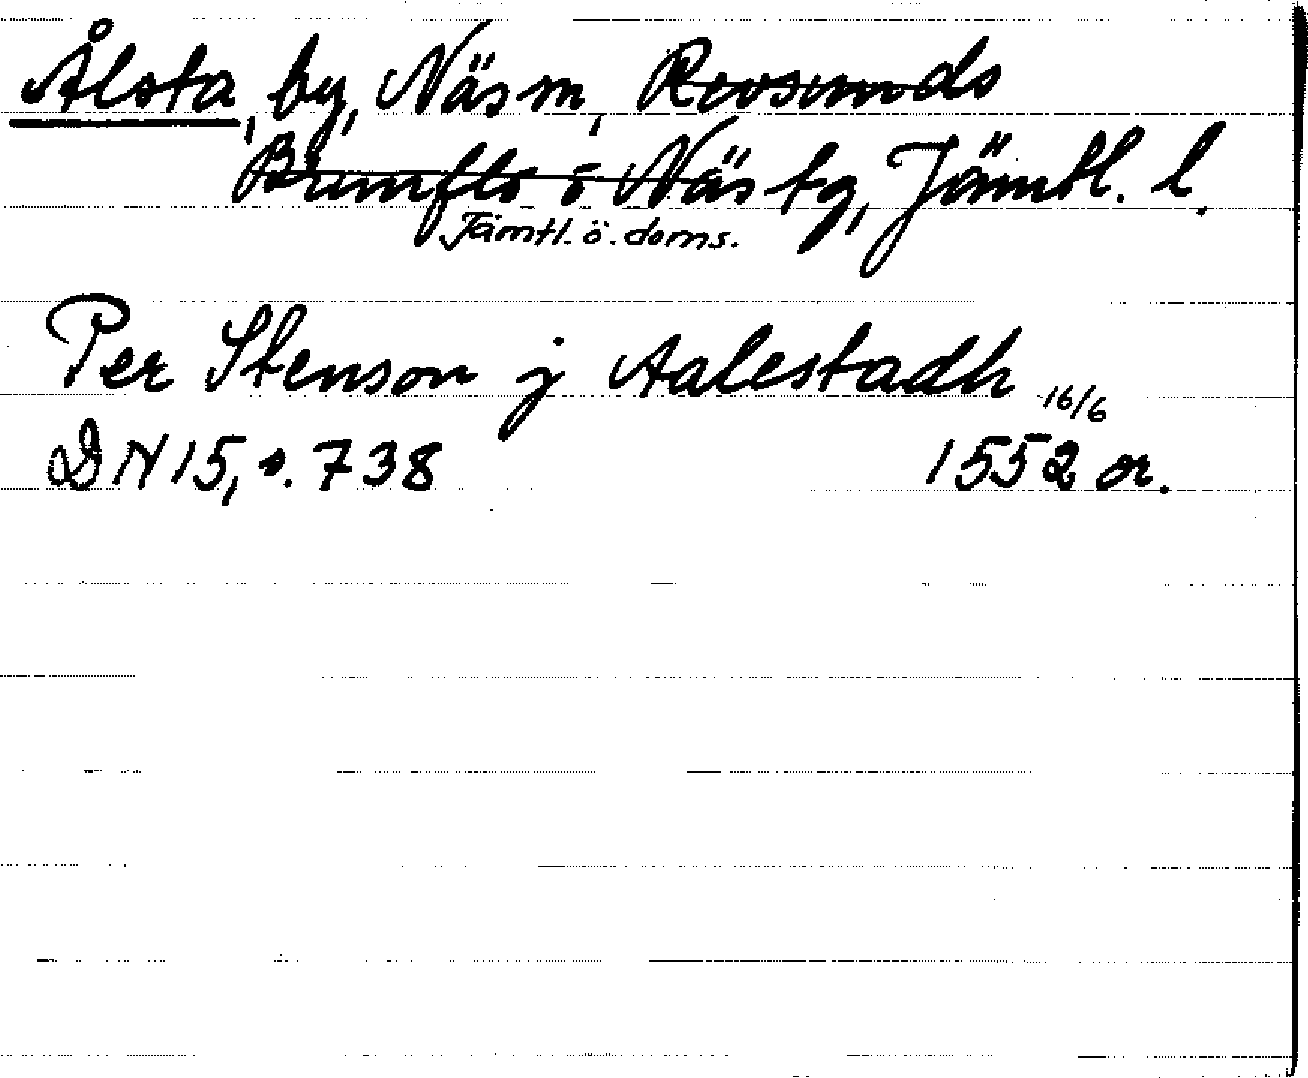 Ålsta, by, Näs sn, Revsunds
Brunflo o Näs tg, Jämtl. l.
Jämtl. ö. doms.
Per Stenson j Aalestadh
16/6
DN 15, s. 738 1552 or.